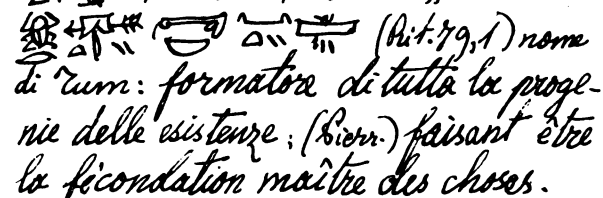 (Rit. 79, 1) nome
di Tum: formatore di tutta la proge-
nie delle esistenze; (Pierr.) faisant être
la fécondation maître des choses.